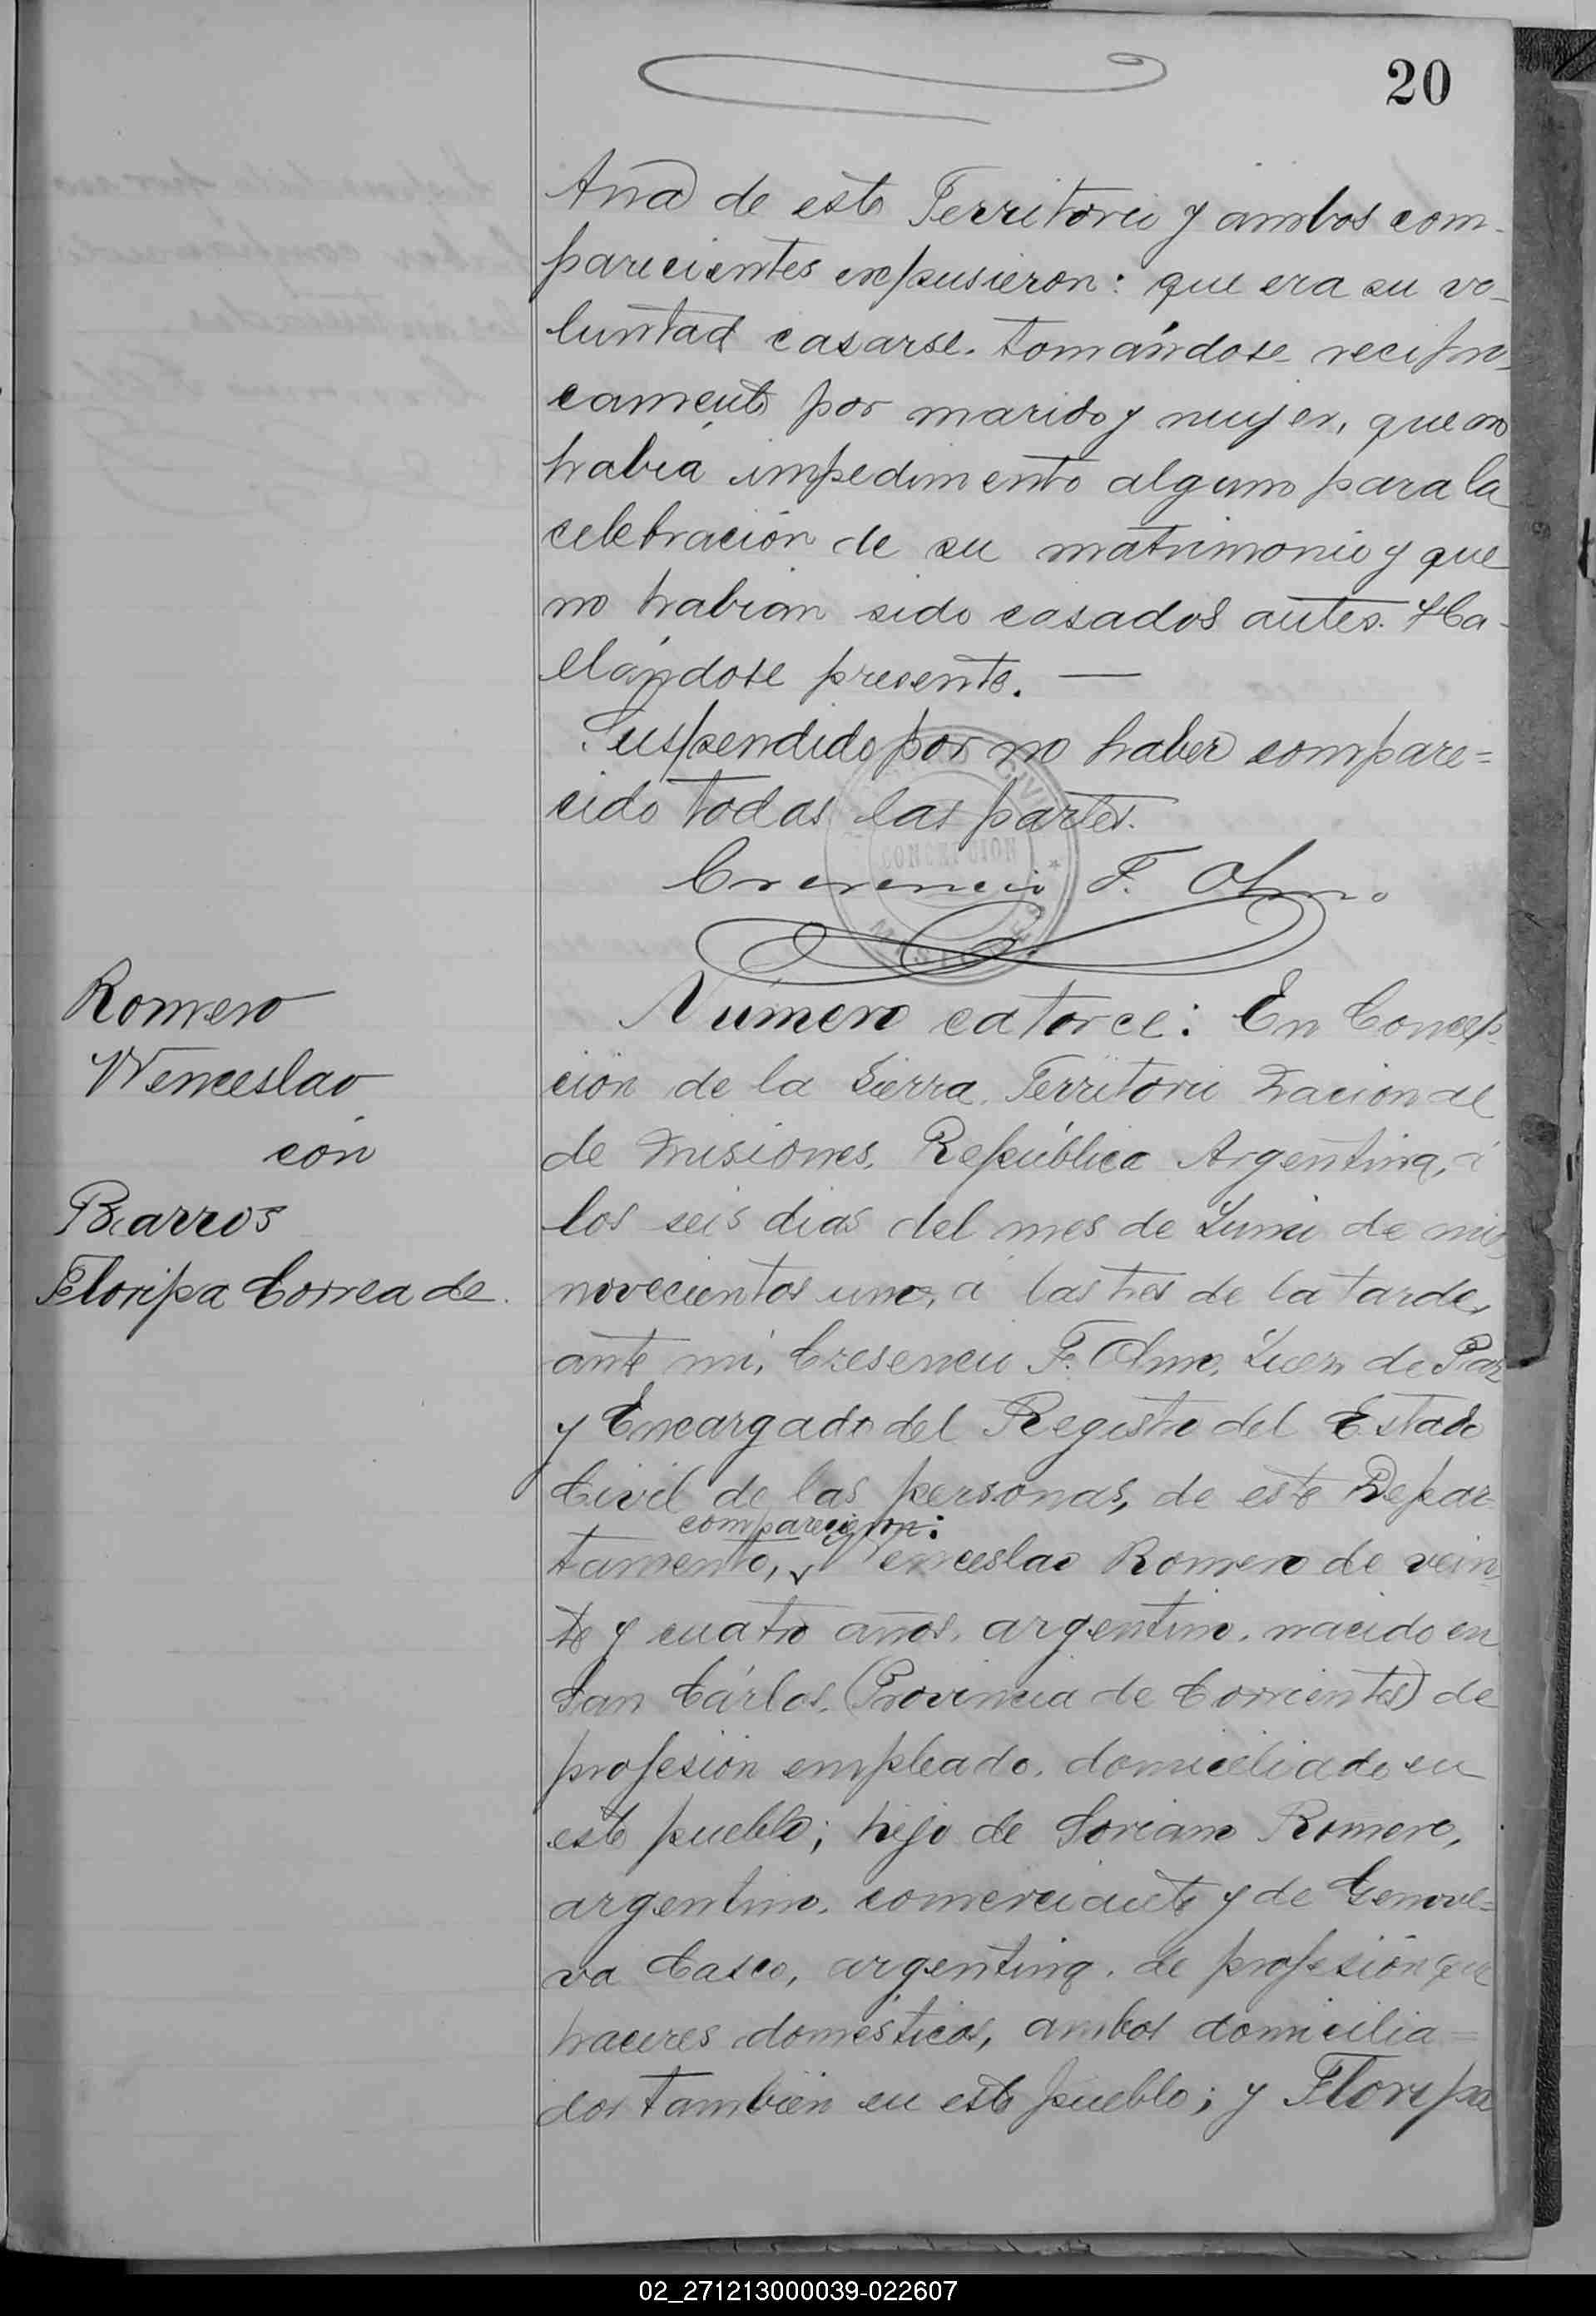 20
Ana de este Territorio y ambos com-
parecientes expusieron: que era su vo-
luntad casarse tomándose recipro-
camente por marido y mujer, que no
había impedimento alguno para la
celebración de su matrimonio y que
no habian sido casados antes. Ha-
llándose presente. —
Suspendido por no haber compare=
cido todas las partes.
CONCEPCION
Crecencio F. Olmo.
Romero
Wenceslao
con
Barros
Floripa Correa de
Número catorce: En Concep-
ción de la Sierra, Territorio Nacional
de Misiones, República Argentina, á
los seis dias del mes de Junio de mil
novecientos uno, á las tres de la tarde,
ante mí, Cresencio F. Olmo, Juez de Paz
y Encargado del Registro del Estado
Civil de las personas, de este Depar-
comparecieron:
tamento, Wenceslao Romero de vein-
te y cuatro años, argentino, nacido en
San Cárlos, (Provincia de Corrientes) de
profesión empleado, domiciliado en
este pueblo; hijo de Soriano Romero,
argentino, comerciante y de Genove=
va Casco, argentina, de profesión que
haceres domésticos, ambos domicilia=
dos también en este pueblo; y Floripa
02_271213000039-022607